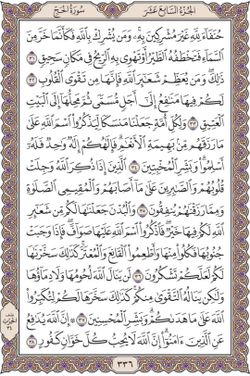 الجزء السابع عشر
سورة الحج
حُنَفَاءَ لِلَّهِ غَيْرَ مُشْرِكِينَ بِهِۦ ۚ وَمَن يُشْرِكْ بِٱللَّهِ فَكَأَنَّمَا خَرَّ مِنَ
ٱلسَّمَاءِ فَتَخْطَفُهُ ٱلطَّيْرُ أَوْ تَهْوِى بِهِ ٱلرِّيحُ فِى مَكَانٍ سَحِيقٍ ٣١
ذَٰلِكَ وَمَن يُعَظِّمْ شَعَٰٓئِرَ ٱللَّهِ فَإِنَّهَا مِن تَقْوَى ٱلْقُلُوبِ ٣٢
لَكُمْ فِيهَا مَنَٰفِعُ إِلَىٰٓ أَجَلٍ مُّسَمًّى ثُمَّ مَحِلُّهَآ إِلَى ٱلْبَيْتِ
ٱلْعَتِيقِ ٣٣ وَلِكُلِّ أُمَّةٍ جَعَلْنَا مَنسَكًا لِّيَذْكُرُوا۟ ٱسْمَ ٱللَّهِ عَلَىٰ
مَا رَزَقَهُم مِّنۢ بَهِيمَةِ ٱلْأَنْعَٰمِ ۗ فَإِلَٰهُكُمْ إِلَٰهٌ وَٰحِدٌ فَلَهُۥٓ
أَسْلِمُوا۟ ۗ وَبَشِّرِ ٱلْمُخْبِتِينَ ٣٤ ٱلَّذِينَ إِذَا ذُكِرَ ٱللَّهُ وَجِلَتْ
قُلُوبُهُمْ وَٱلصَّٰبِرِينَ عَلَىٰ مَآ أَصَابَهُمْ وَٱلْمُقِيمِى ٱلصَّلَوٰةِ
وَمِمَّا رَزَقْنَٰهُمْ يُنفِقُونَ ٣٥ وَٱلْبُدْنَ جَعَلْنَٰهَا لَكُم مِّن شَعَٰٓئِرِ
ٱللَّهِ لَكُمْ فِيهَا خَيْرٌ ۖ فَٱذْكُرُوا۟ ٱسْمَ ٱللَّهِ عَلَيْهَا صَوَآفَّ ۖ فَإِذَا وَجَبَتْ
جُنُوبُهَا فَكُلُوا۟ مِنْهَا وَأَطْعِمُوا۟ ٱلْقَانِعَ وَٱلْمُعْتَرَّ ۚ كَذَٰلِكَ سَخَّرْنَٰهَا
لَكُمْ لَعَلَّكُمْ تَشْكُرُونَ ٣٦ لَن يَنَالَ ٱللَّهَ لُحُومُهَا وَلَا دِمَآؤُهَا
وَلَٰكِن يَنَالُهُ ٱلتَّقْوَىٰ مِنكُمْ ۚ كَذَٰلِكَ سَخَّرَهَا لَكُمْ لِتُكَبِّرُوا۟
ٱللَّهَ عَلَىٰ مَا هَدَىٰكُمْ ۗ وَبَشِّرِ ٱلْمُحْسِنِينَ ٣٧ ۞ إِنَّ ٱللَّهَ يُدَٰفِعُ
عَنِ ٱلَّذِينَ ءَامَنُوٓا۟ ۗ إِنَّ ٱللَّهَ لَا يُحِبُّ كُلَّ خَوَّانٍ كَفُورٍ ٣٨
٣٣٦